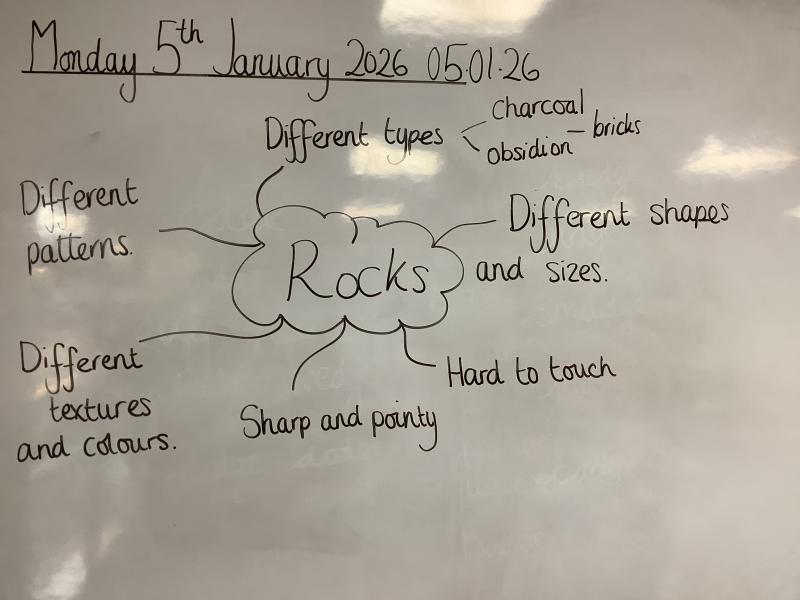 Monday 5th January 2026 05.01.26
Different types
charcoal
obsidian – bricks
Different
patterns.
Rocks
Different shapes
and sizes.
Different
textures
and colours.
Sharp and pointy
Hard to touch